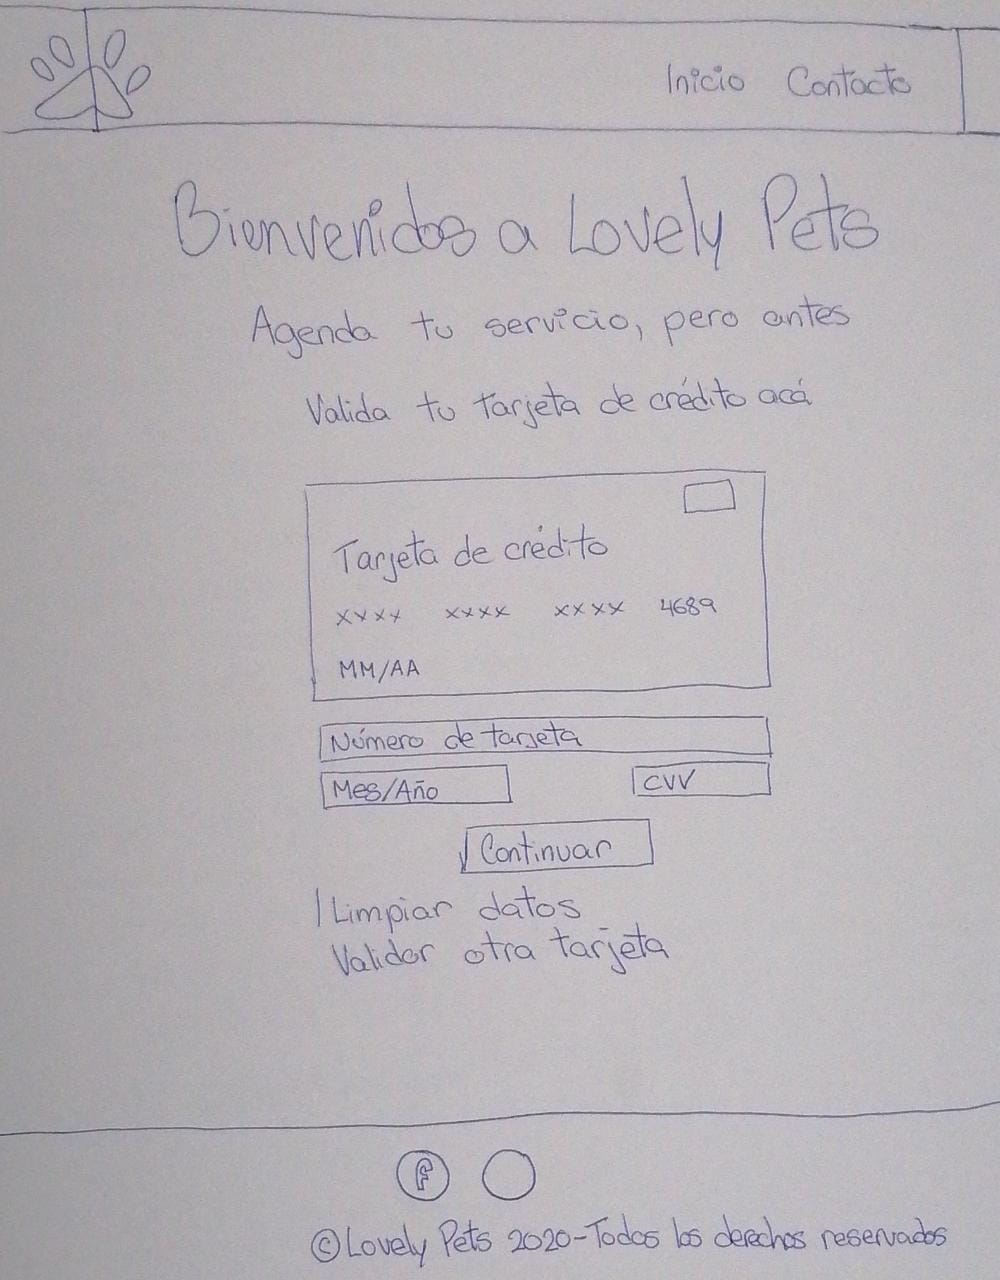 Inicio Contacto
Bienvenidos a Lovely Pets
Agenda tu servicio, pero antes
Valida tu tarjeta de crédito acá
Tarjeta de crédito
xxxx xxxx xxxx 4689
MM/AA
Número de tarjeta
Mes/Año CVV
Continuar
Limpiar datos
Validar otra tarjeta
f
©Lovely Pets 2020-Todos los derechos reservados